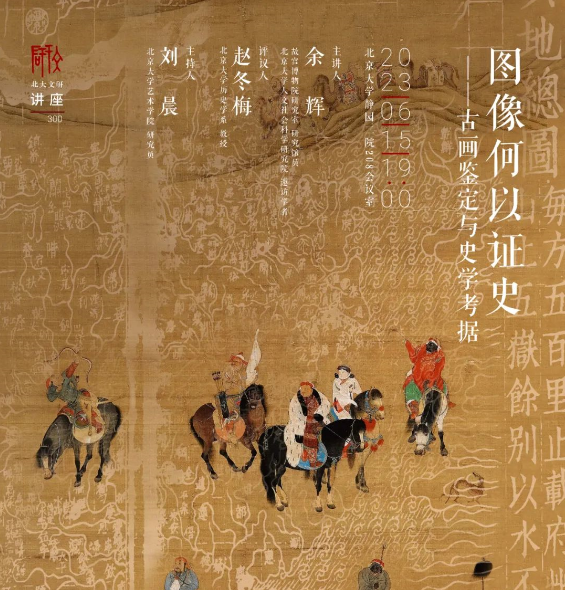 地總圖每方五百里止載府
五嶽餘別以水不
图像何以证史
古画鉴定与史学考据
2023
06
15
19:00
北京大学静园二院208会议室
主讲人
余辉
故宫博物院研究室 研究馆员
北京大学人文社会科学研究院 邀访学者
评议人
赵冬梅
北京大学历史学系 教授
主持人
刘晨
北京大学艺术学院 研究员
北大文研
讲座
300